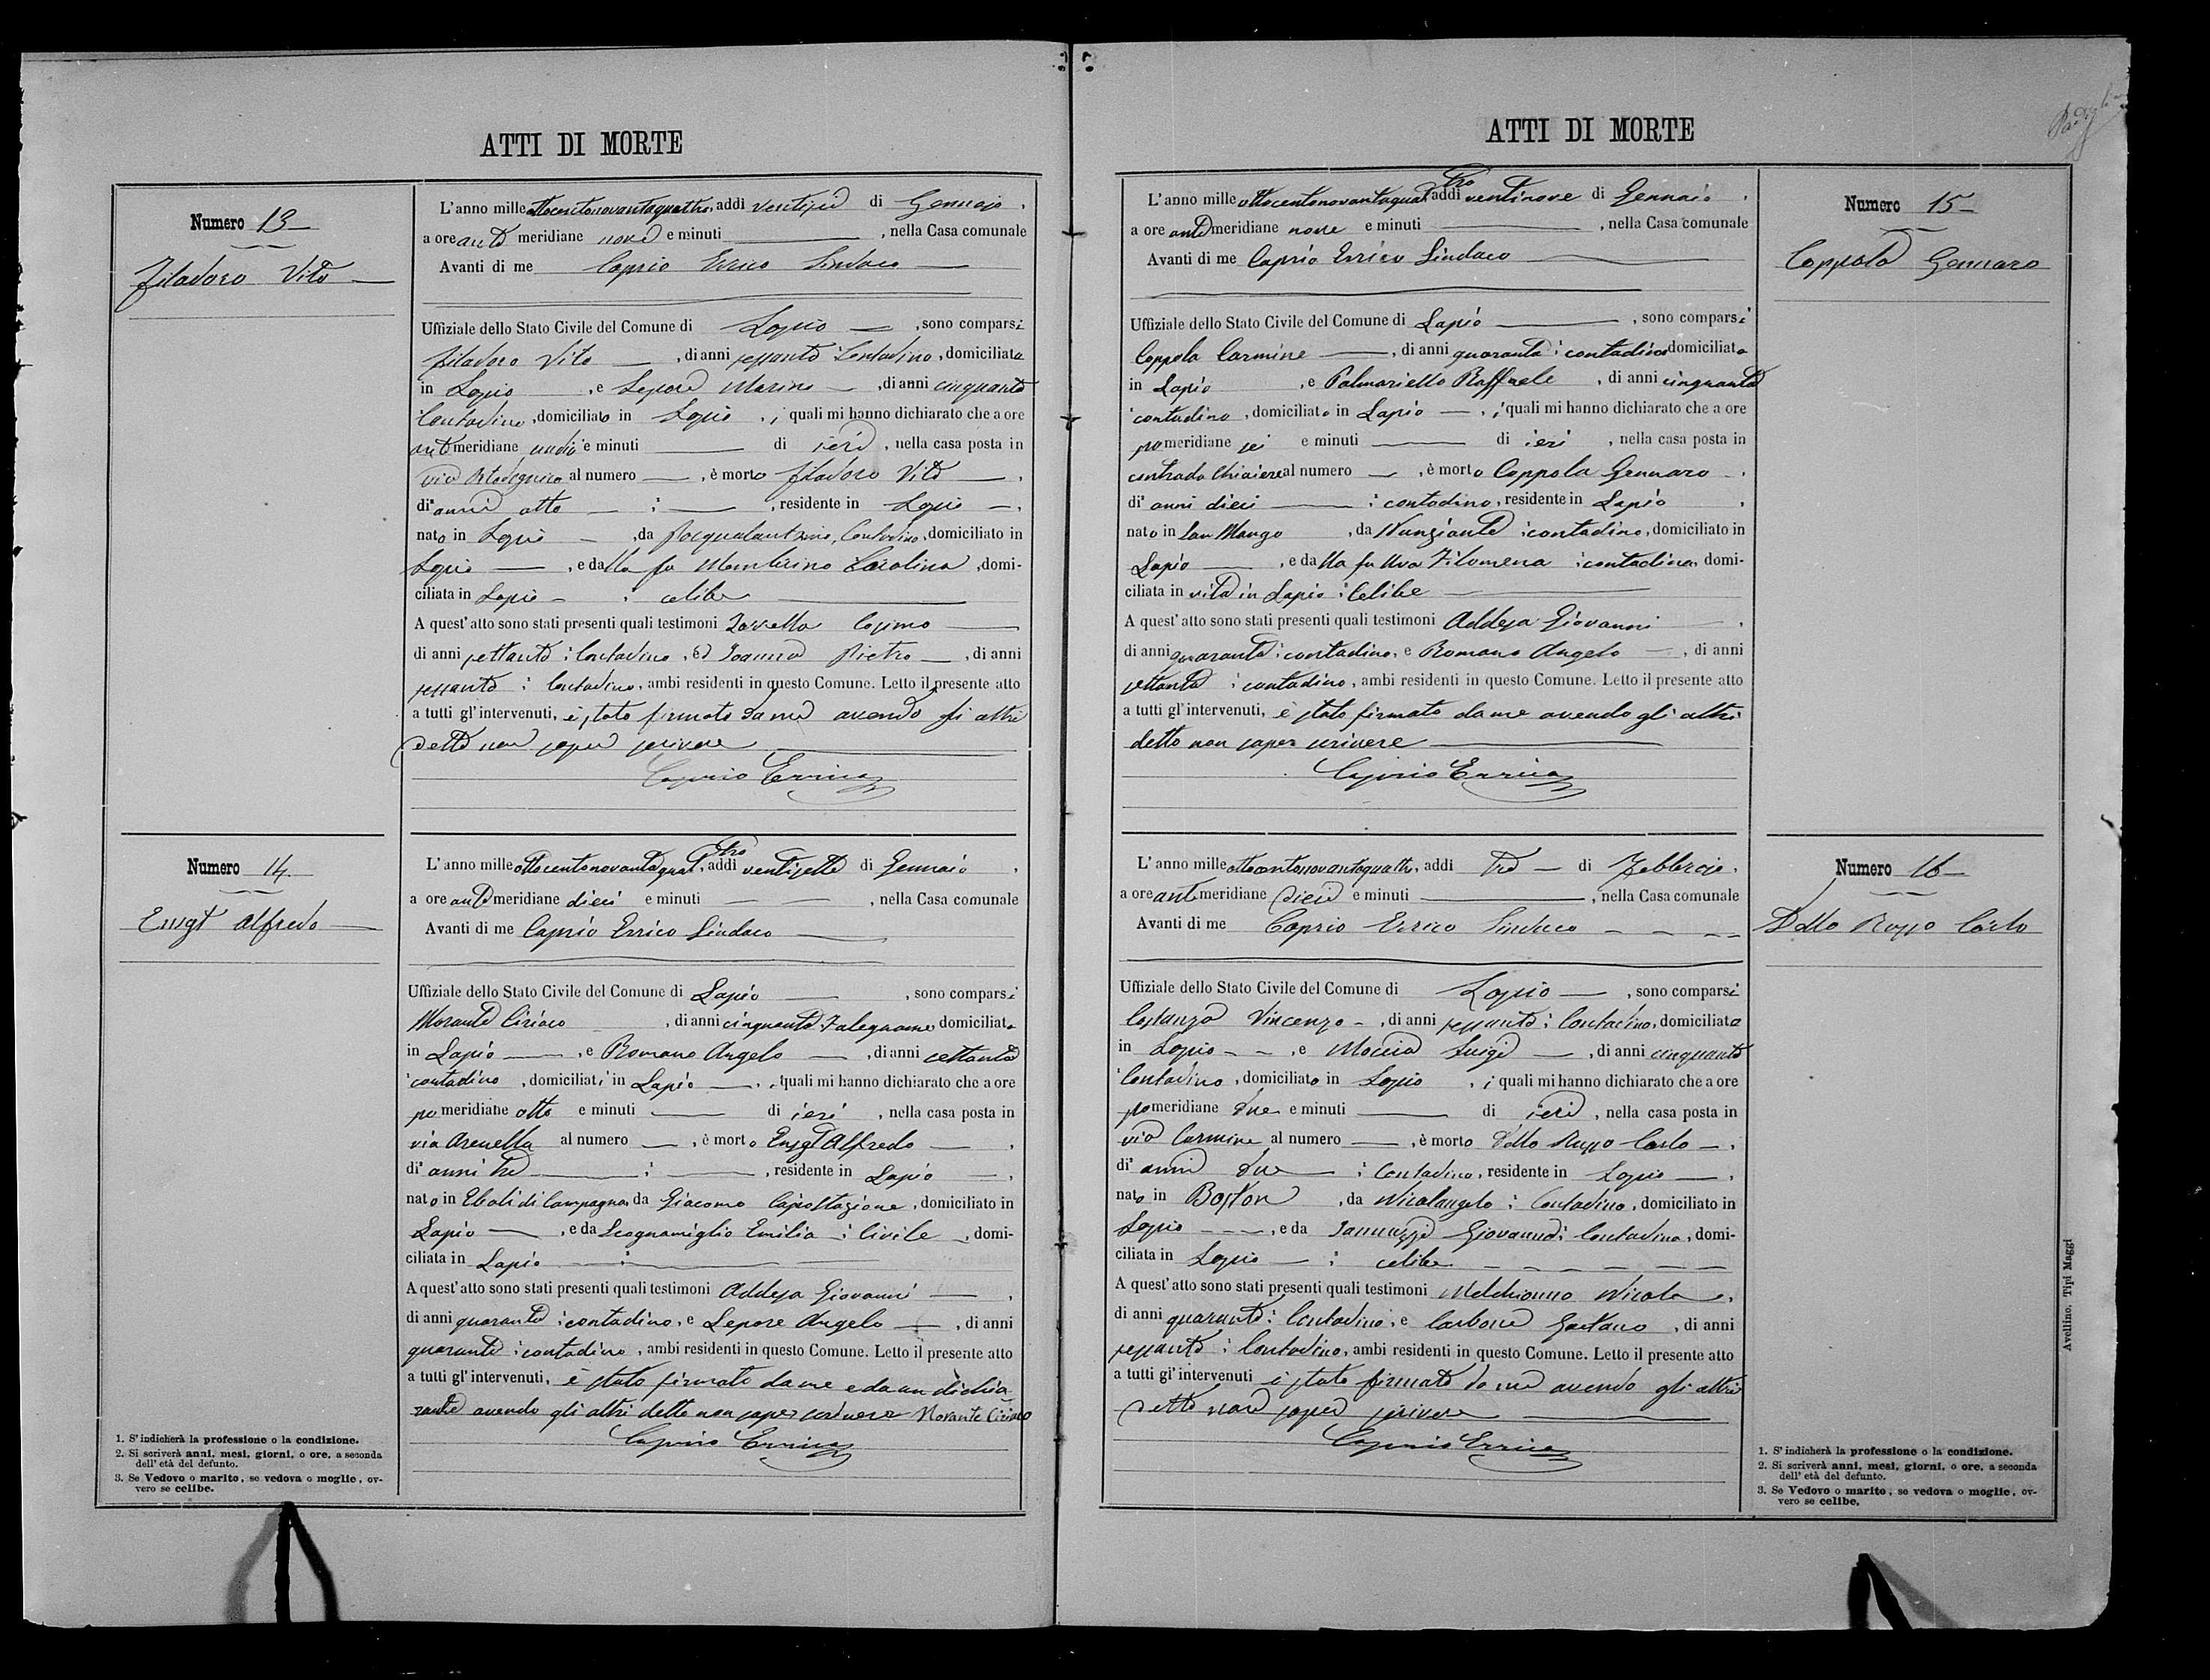 ATTI DI MORTE
Numero 13
Filadoro Vito
L'anno mille ottocentonovantaquattro, addì ventisei di Gennajo,
a ore anti meridiane nove e minuti , nella Casa comunale
Avanti di me Caprio Errico Sindaco
Uffiziale dello Stato Civile del Comune di Lapio , sono comparsi
Filadoro Vito , di anni sessanta Contadino, domiciliato
in Lapio , e Lepore Marino , di anni cinquanta
Contadino, domiciliato in Lapio , i quali mi hanno dichiarato che a ore
anti meridiane undici e minuti di ieri , nella casa posta in
via al numero , è morto Filadoro Vito ,
di² anni otto , residente in Lapio ,
nato in Lapio , da Pasqualantonio, Contadino, domiciliato in
Lapio , e dalla fu Carolina , domi-
ciliata in Lapio ; celibe
A quest'atto sono stati presenti quali testimoni Cosimo
di anni settanta ; Contadino, ed Pietro , di anni
sessanta ; Contadino, ambi residenti in questo Comune. Letto il presente atto
a tutti gl'intervenuti, è stato firmato da me avendo gli altri
detto non saper scrivere
Caprio Errico
Numero 14
Ensgt Alfredo
L'anno mille ottocentonovantaquattro, addì ventisette di Gennaio ,
a ore anti meridiane dieci e minuti , nella Casa comunale
Avanti di me Caprio Errico Sindaco
Uffiziale dello Stato Civile del Comune di Lapio , sono comparsi
Morante Ciriaco , di anni cinquanta Falegname domiciliato
in Lapio , e Romano Angelo , di anni settanta
contadino , domiciliati in Lapio , i quali mi hanno dichiarato che a ore
po meridiane otto e minuti di ieri , nella casa posta in
via Arenella al numero , è morto Ensgt Alfredo ,
di² anni tre ; , residente in Lapio ,
nato in Eboli di Campagna, da Giacomo Capostazione , domiciliato in
Lapio , e da Scognamiglio Emilia ; Civile , domi-
ciliata in Lapio
A quest'atto sono stati presenti quali testimoni Addesa Giovanni ,
di anni quaranta ; contadino, e Lepore Angelo , di anni
quaranta ; contadino , ambi residenti in questo Comune. Letto il presente atto
a tutti gl'intervenuti, è stato firmato da me e da un dichia-
rante avendo gli altri detto non saper scrivere Morante Ciriaco
Caprio Errico
1. S'indicherà la professione o la condizione.
2. Si scriverà anni, mesi, giorni, o ore, a seconda
dell'età del defunto.
3. Se Vedovo o marito, se vedova o moglie, ov-
vero se celibe.
ATTI DI MORTE
Numero 15
Coppola Gennaro
L'anno mille ottocentonovantaquattro addì ventinove di Gennaio ,
a ore anti meridiane nove e minuti , nella Casa comunale
Avanti di me Caprio Errico Sindaco
Uffiziale dello Stato Civile del Comune di Lapio , sono comparsi
Coppola Carmine , di anni quaranta ; contadino domiciliato
in Lapio , e Palmariello Raffaele , di anni cinquanta
contadino , domiciliato in Lapio , i quali mi hanno dichiarato che a ore
po meridiane sei e minuti di ieri , nella casa posta in
contrada Chiaiere al numero , è morto Coppola Gennaro ,
di² anni dieci ; contadino, residente in Lapio ,
nato in San Mango , da Nunziante ; contadino, domiciliato in
Lapio , e dalla fu Uva Filomena ; contadina, domi-
ciliata in vita in Lapio ; Celibe
A quest'atto sono stati presenti quali testimoni Addesa Giovanni ,
di anni quaranta ; contadino, e Romano Angelo , di anni
settanta ; contadino , ambi residenti in questo Comune. Letto il presente atto
a tutti gl'intervenuti, è stato firmato da me avendo gli altri
detto non saper scrivere
Caprio Errico
Numero 16
Dello Russo Carlo
L'anno mille ottocentonovantaquattro, addì tre di Febbraio,
a ore anti meridiane dieci e minuti , nella Casa comunale
Avanti di me Caprio Errico Sindaco
Uffiziale dello Stato Civile del Comune di Lapio , sono comparsi
Costanza Vincenzo , di anni sessanta ; Contadino, domiciliato
in Lapio , e Moccia Luigi , di anni cinquanta
Contadino , domiciliato in Lapio , i quali mi hanno dichiarato che a ore
po meridiane due e minuti di ieri , nella casa posta in
via Carmine al numero , è morto Dello Russo Carlo ,
di² anni due ; Contadino, residente in Lapio ,
nato in Boston , da Nicolangelo ; Contadino, domiciliato in
Lapio , e da Jannuzzi Giovanna ; Contadina, domi-
ciliata in Lapio ; celibe
A quest'atto sono stati presenti quali testimoni Melchionno Nicola ,
di anni quaranta ; Contadino, e Carbone Gaetano , di anni
sessanta ; Contadino, ambi residenti in questo Comune. Letto il presente atto
a tutti gl'intervenuti è stato firmato da me avendo gli altri
detto non saper scrivere
Caprio Errico
1. S'indicherà la professione o la condizione.
2. Si scriverà anni, mesi, giorni, o ore, a seconda
dell'età del defunto.
3. Se Vedovo o marito, se vedova o moglie, ov-
vero se celibe.
Avellino, Tipi Maggi